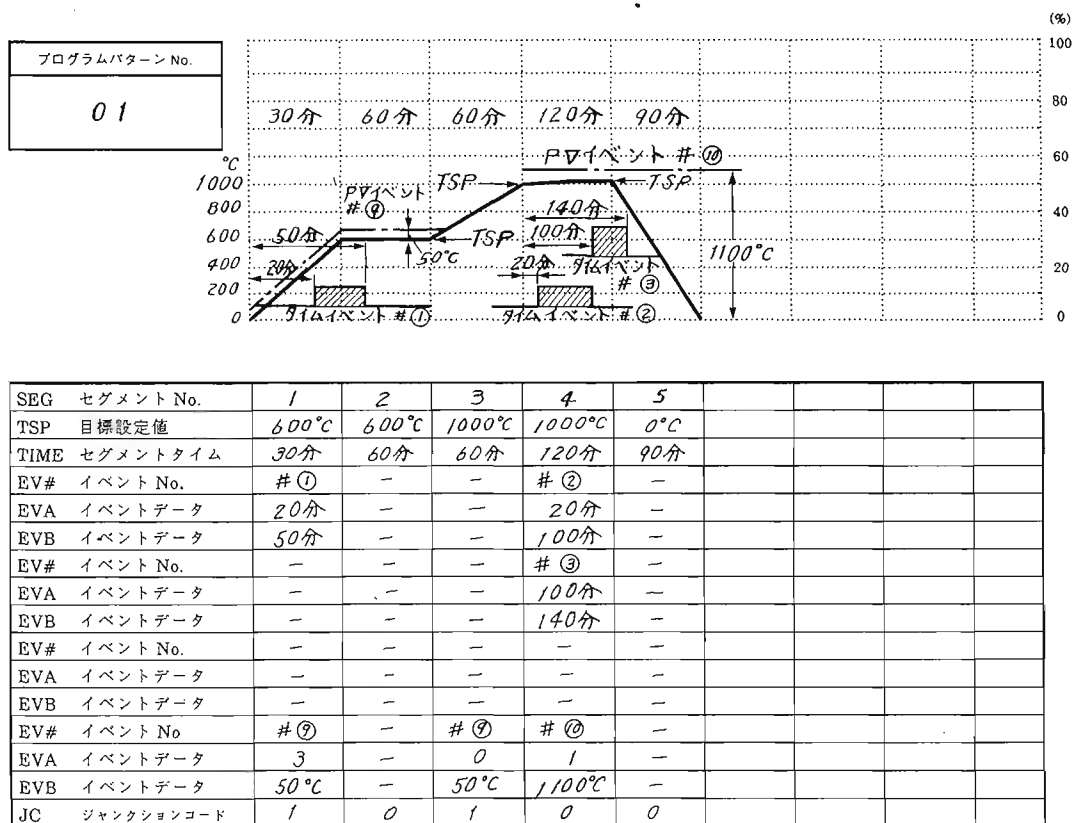 (%)
100
プログラムパターン No.
01
80
30分 60分 60分 120分 90分
PVイベント #⑩
60
°C
1000
TSP
TSP
PVイベント
#⑨
800
140分
40
600
50分
TSP
100分
50°C
1100°C
400
20分
20分
タイムイベント
#③
20
200
0
タイムイベント #①
タイムイベント #②
0
SEG セグメント No. 1 2 3 4 5
TSP 目標設定値 600°C 600°C 1000°C 1000°C 0°C
TIME セグメントタイム 30分 60分 60分 120分 90分
EV# イベント No. #① - - #② -
EVA イベントデータ 20分 - - 20分 -
EVB イベントデータ 50分 - - 100分 -
EV# イベント No. - - - #③ -
EVA イベントデータ - - - 100分 -
EVB イベントデータ - - - 140分 -
EV# イベント No. - - - - -
EVA イベントデータ - - - - -
EVB イベントデータ - - - - -
EV# イベント No #⑨ - #⑨ #⑩ -
EVA イベントデータ 3 - 0 1 -
EVB イベントデータ 50°C - 50°C 1100°C -
JC ジャンクションコード 1 0 1 0 0